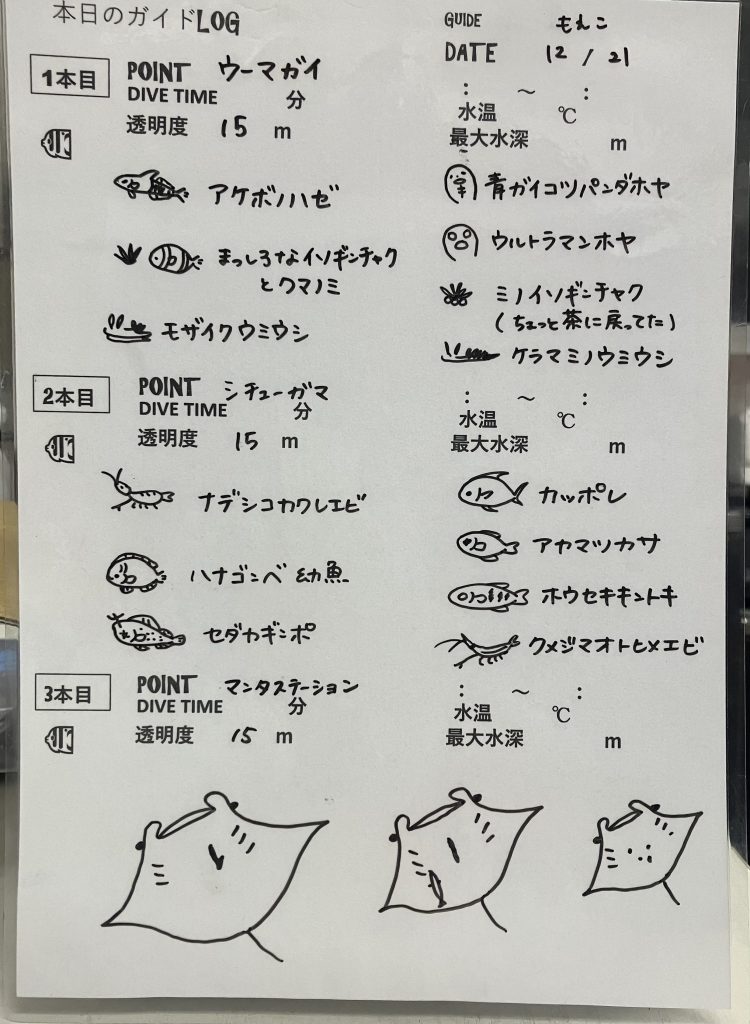 本日のガイドLOG
GUIDE もえこ
DATE 12 / 21
1本目 POINT ウーマガイ
DIVE TIME 分
透明度 15 m
: ～ :
水温 ℃
最大水深 m
アケボノハゼ
まっしろなイソギンチャク
とクマノミ
モザイクウミウシ
青ガイコツパンダホヤ
ウルトラマンホヤ
ミノイソギンチャク
(ちょっと茶に戻ってた)
ケラマミノウミウシ
2本目 POINT シチューガマ
DIVE TIME 分
透明度 15 m
: ～ :
水温 ℃
最大水深 m
ナデシコカクレエビ
ハナゴンベ 幼魚
セダカギンポ
カッポレ
アカマツカサ
ホウセキキントキ
クメジマオトヒメエビ
3本目 POINT マンタステーション
DIVE TIME 分
透明度 15 m
: ～ :
水温 ℃
最大水深 m